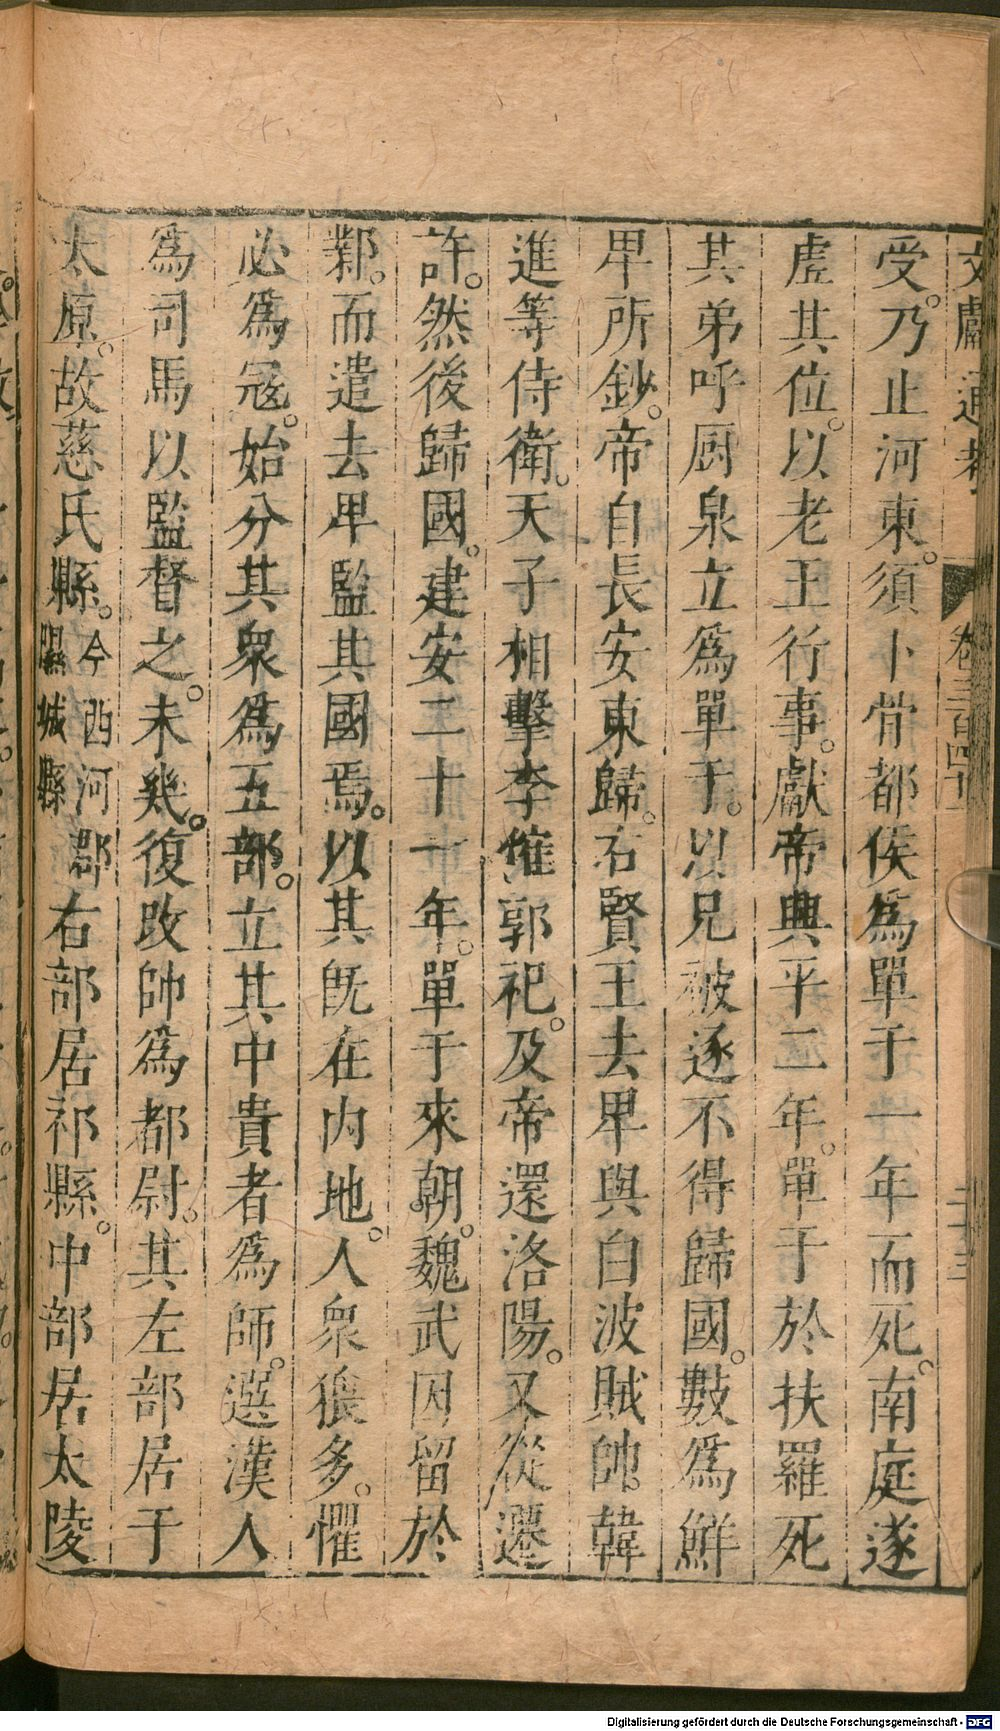 文獻通考 卷三百四十 二十三
受。乃止河東。須卜骨都侯為單于一年而死。南庭遂
虛其位。以老王行事。獻帝興平二年。單于於扶羅死
其弟呼厨泉立為單于。以兄被逐不得歸國。數為鮮
卑所鈔。帝自長安東歸。右賢王去卑與白波賊帥韓
進等侍衛。天子相擊李傕郭祀。及帝還洛陽。又從遷
許。然後歸國。建安二十一年。單于來朝。魏武因留於
鄴。而遣去卑監其國焉。以其旣在内地。人衆猥多。懼
必為冦。始分其衆為五部。立其中貴者為師。選漢人
為司馬以監督之。未幾。復改帥為都尉。其左部居于
太原。故慈氏縣。今西河郡隰城縣右部居祁縣。中部居太陵
Digitalisierung gefördert durch die Deutsche Forschungsgemeinschaft - DFG